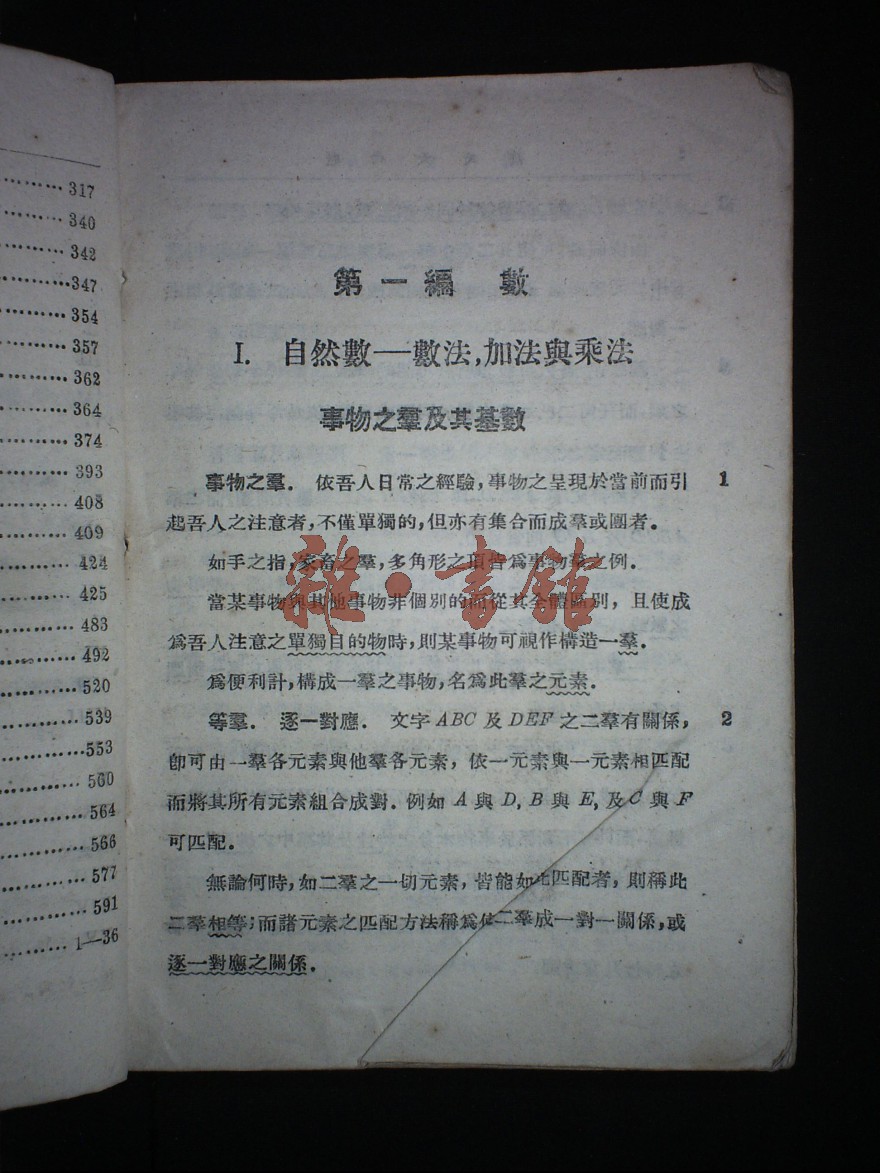 317
340
342
347
354
357
362
364
374
393
408
409
424
425
483
492
520
539
553
560
564
566
577
591
1—36
第一編 數
I. 自然數——數法,加法與乘法
事物之羣及其基數
事物之羣. 依吾人日常之經驗,事物之呈現於當前而引 1
起吾人之注意者,不僅單獨的,但亦有集合而成羣或團者.
如手之指,家畜之羣,多角形之頂皆爲事物羣之例.
當某事物與其他事物非個別的而從其全體區別,且使成
爲吾人注意之單獨目的物時,則某事物可視作構造一羣.
爲便利計,構成一羣之事物,名爲此羣之元素.
等羣. 逐一對應. 文字 ABC 及 DEF 之二羣有關係, 2
卽可由一羣各元素與他羣各元素,依一元素與一元素相匹配
而將其所有元素組合成對. 例如 A 與 D, B 與 E, 及 C 與 F
可匹配.
無論何時,如二羣之一切元素,皆能如此匹配者,則稱此
二羣相等;而諸元素之匹配方法稱爲使二羣成一對一關係,或
逐一對應之關係.
雜·書館